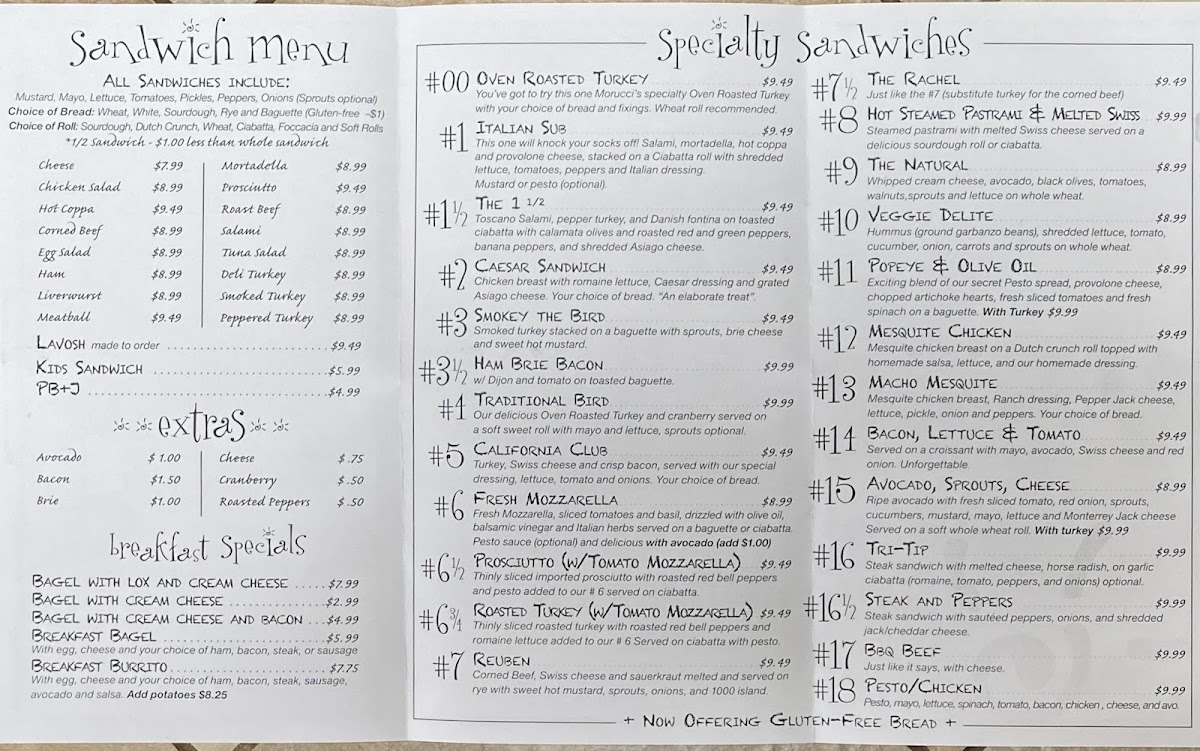 Sandwich Menu
All Sandwiches include:
Mustard, Mayo, Lettuce, Tomatoes, Pickles, Peppers, Onions (Sprouts optional)
Choice of Bread: Wheat, White, Sourdough, Rye and Baguette (Gluten-free ~$1)
Choice of Roll: Sourdough, Dutch Crunch, Wheat, Ciabatta, Foccacia and Soft Rolls
*1/2 Sandwich - $1.00 less than whole sandwich
Cheese $7.99
Chicken Salad $8.99
Hot Coppa $9.49
Corned Beef $8.99
Egg Salad $8.99
Ham $8.99
Liverwurst $8.99
Meatball $9.49
Mortadella $8.99
Prosciutto $9.49
Roast Beef $8.99
Salami $8.99
Tuna Salad $8.99
Deli Turkey $8.99
Smoked Turkey $8.99
Peppered Turkey $8.99
Lavosh made to order $9.49
Kids Sandwich $5.99
PB+J $4.99
extras
Avocado $1.00
Bacon $1.50
Brie $1.00
Cheese $.75
Cranberry $.50
Roasted Peppers $.50
breakfast specials
Bagel with lox and cream cheese $7.99
Bagel with cream cheese $2.99
Bagel with cream cheese and bacon $4.99
Breakfast Bagel $5.99
With egg, cheese and your choice of ham, bacon, steak, or sausage
Breakfast Burrito $7.75
With egg, cheese and your choice of ham, bacon, steak, sausage,
avocado and salsa. Add potatoes $8.25
Specialty Sandwiches
#00 Oven Roasted Turkey $9.49
You've got to try this one Morucci's specialty Oven Roasted Turkey
with your choice of bread and fixings. Wheat roll recommended.
#1 Italian Sub $9.49
This one will knock your socks off! Salami, mortadella, hot coppa
and provolone cheese, stacked on a Ciabatta roll with shredded
lettuce, tomatoes, peppers and Italian dressing.
Mustard or pesto (optional).
#1½ The 1 1/2 $9.49
Toscano Salami, pepper turkey, and Danish fontina on toasted
ciabatta with calamata olives and roasted red and green peppers,
banana peppers, and shredded Asiago cheese.
#2 Caesar Sandwich $9.49
Chicken breast with romaine lettuce, Caesar dressing and grated
Asiago cheese. Your choice of bread. "An elaborate treat".
#3 Smokey the Bird $9.49
Smoked turkey stacked on a baguette with sprouts, brie cheese
and sweet hot mustard.
#3½ Ham Brie Bacon $9.99
w/ Dijon and tomato on toasted baguette.
#4 Traditional Bird $9.99
Our delicious Oven Roasted Turkey and cranberry served on
a soft sweet roll with mayo and lettuce, sprouts optional.
#5 California Club $9.49
Turkey, Swiss cheese and crisp bacon, served with our special
dressing, lettuce, tomato and onions. Your choice of bread.
#6 Fresh Mozzarella $8.99
Fresh Mozzarella, sliced tomatoes and basil, drizzled with olive oil,
balsamic vinegar and Italian herbs served on a baguette or ciabatta.
Pesto sauce (optional) and delicious with avocado (add $1.00)
#6½ Prosciutto (w/Tomato Mozzarella) $9.49
Thinly sliced imported prosciutto with roasted red bell peppers
and pesto added to our # 6 served on ciabatta.
#6¾ Roasted Turkey (w/Tomato Mozzarella) $9.49
Thinly sliced roasted turkey with roasted red bell peppers and
romaine lettuce added to our # 6 Served on ciabatta with pesto.
#7 Reuben $9.49
Corned Beef, Swiss cheese and sauerkraut melted and served on
rye with sweet hot mustard, sprouts, onions, and 1000 island.
#7½ The Rachel $9.49
Just like the #7 (substitute turkey for the corned beef)
#8 Hot Steamed Pastrami & Melted Swiss $9.99
Steamed pastrami with melted Swiss cheese served on a
delicious sourdough roll or ciabatta.
#9 The Natural $8.99
Whipped cream cheese, avocado, black olives, tomatoes,
walnuts,sprouts and lettuce on whole wheat.
#10 Veggie Delite $8.99
Hummus (ground garbanzo beans), shredded lettuce, tomato,
cucumber, onion, carrots and sprouts on whole wheat.
#11 Popeye & Olive Oil $8.99
Exciting blend of our secret Pesto spread, provolone cheese,
chopped artichoke hearts, fresh sliced tomatoes and fresh
spinach on a baguette. With Turkey $9.99
#12 Mesquite Chicken $9.49
Mesquite chicken breast on a Dutch crunch roll topped with
homemade salsa, lettuce, and our homemade dressing.
#13 Macho Mesquite $9.49
Mesquite chicken breast, Ranch dressing, Pepper Jack cheese,
lettuce, pickle, onion and peppers. Your choice of bread.
#14 Bacon, Lettuce & Tomato $9.49
Served on a croissant with mayo, avocado, Swiss cheese and red
onion. Unforgettable.
#15 Avocado, Sprouts, Cheese $8.99
Ripe avocado with fresh sliced tomato, red onion, sprouts,
cucumbers, mustard, mayo, lettuce and Monterrey Jack cheese
Served on a soft whole wheat roll. With turkey $9.99
#16 Tri-Tip $9.99
Steak sandwich with melted cheese, horse radish, on garlic
ciabatta (romaine, tomato, peppers, and onions) optional.
#16½ Steak and Peppers $9.99
Steak sandwich with sautéed peppers, onions, and shredded
jack/cheddar cheese.
#17 BBQ Beef $9.99
Just like it says, with cheese.
#18 Pesto/Chicken $9.99
Pesto, mayo, lettuce, spinach, tomato, bacon, chicken , cheese, and avo.
+ Now Offering Gluten-Free Bread +